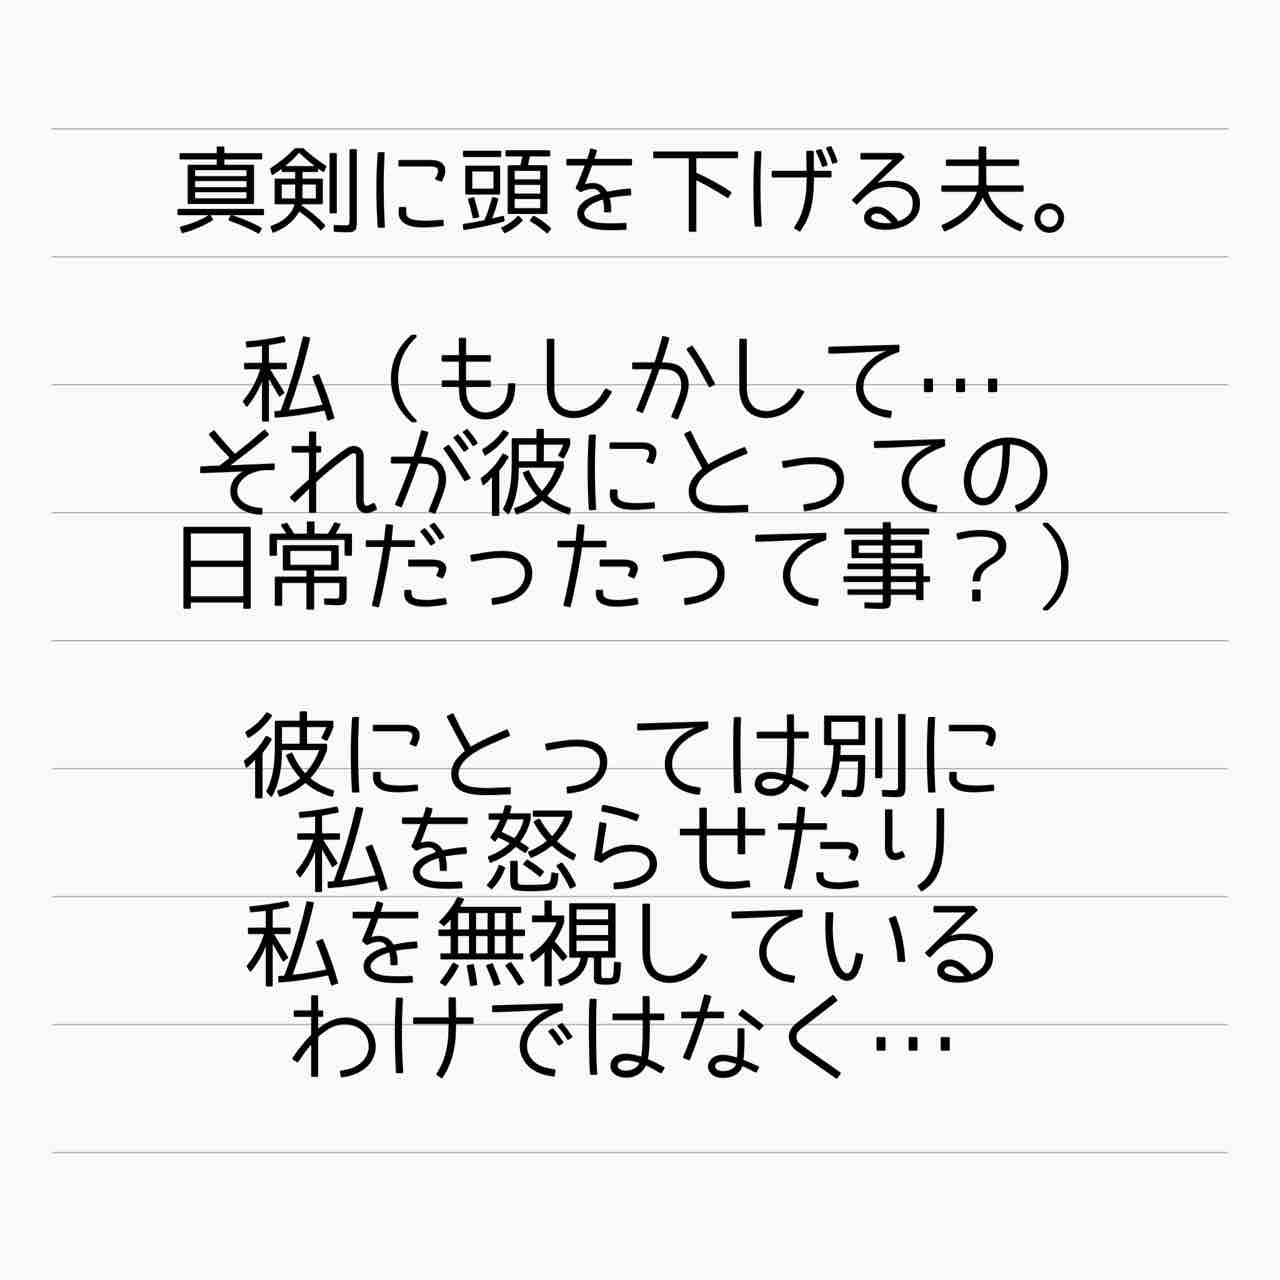 真剣に頭を下げる夫。
私（もしかして…
それが彼にとっての
日常だったって事？）
彼にとっては別に
私を怒らせたり
私を無視している
わけではなく…